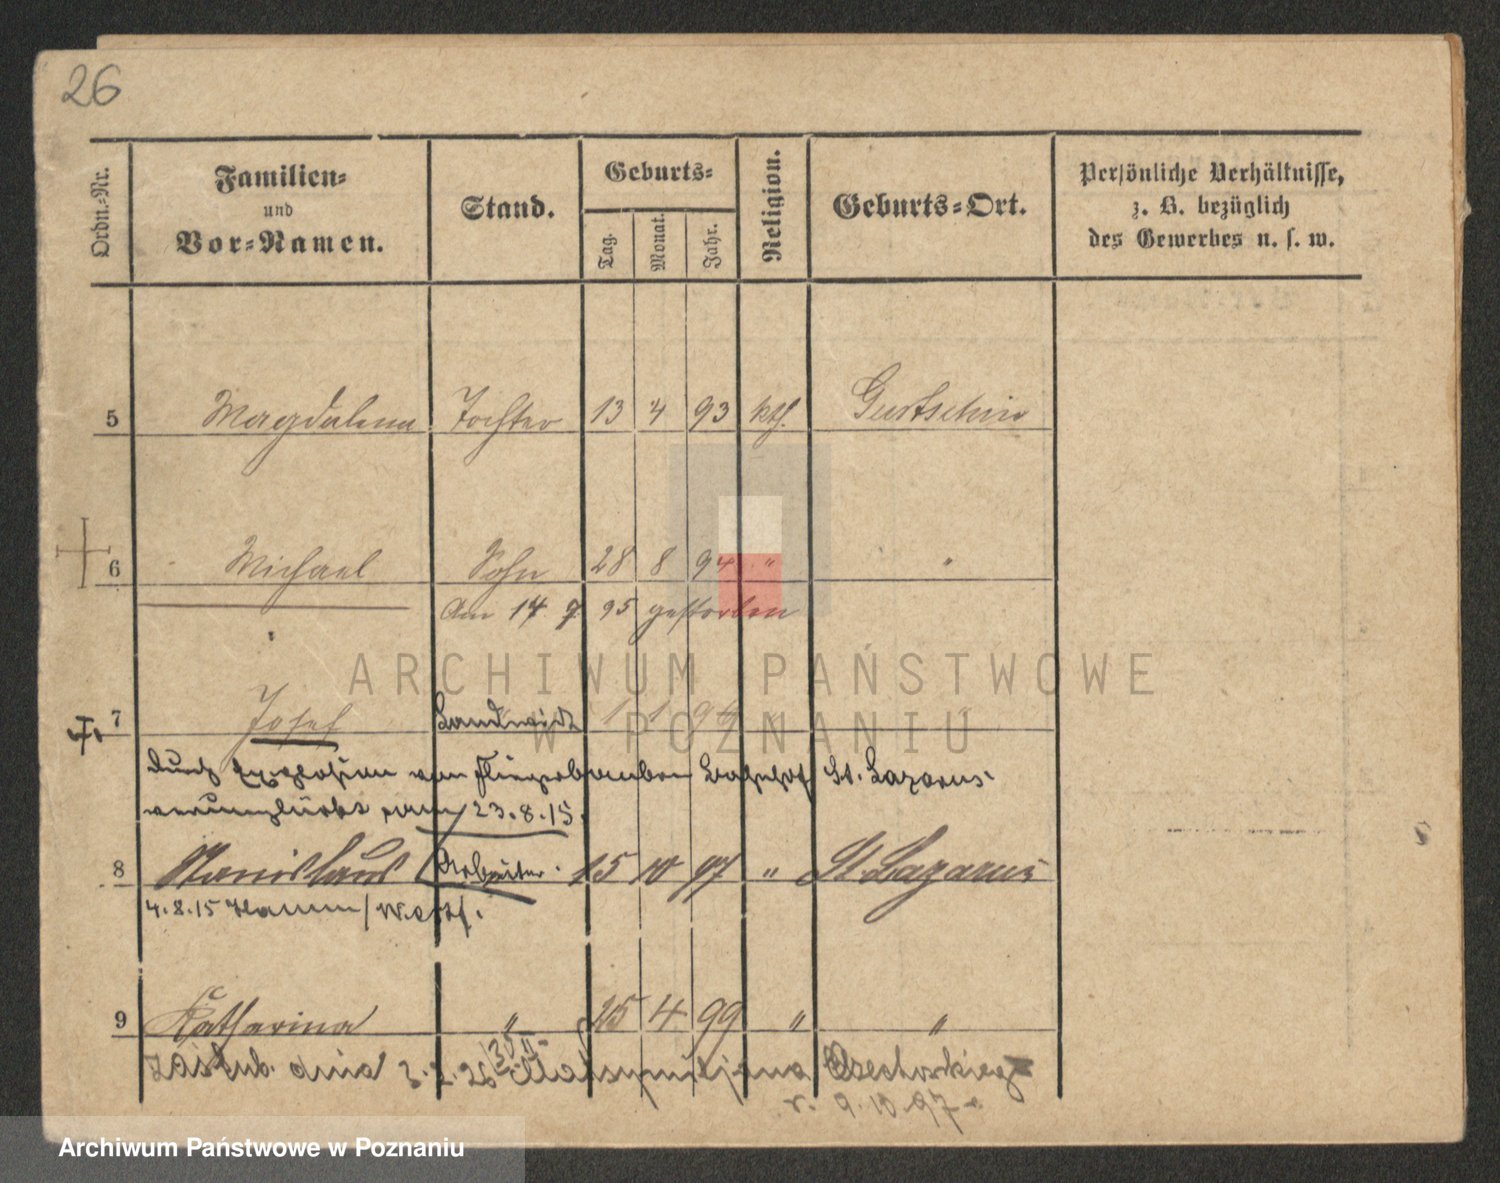 26
Ordn.-Nr.
Familien-
und
Vor-Namen.
Stand.
Geburts-
Tag.
Monat.
Jahr.
Religion.
Geburts-Ort.
Persönliche Verhältnisse,
z. B. bezüglich
des Gewerbes u. s. w.
5 Magdalena Tochter 13 4 93 kth. Gurtschin
6 Michael Sohn 28 8 94 " "
Am 14 9 95 gestorben
7 Josef Landwirt 1 1
durch Explosion von Fliegerbomben Bahnhof St. Lazarus
verunglückt am 23.8.15.
8 Stanislaus Arbeiter. 15 10 97 " St. Lazarus
4.8.15 Hamm/Westf.
9 Katharina " 25 4 99 " "
Zaślub. dnia 3.2.26 Maksymiljana Czechowskiego
r. 9.10.97
ARCHIWUM PAŃSTWOWE
W POZNANIU
Archiwum Państwowe w Poznaniu